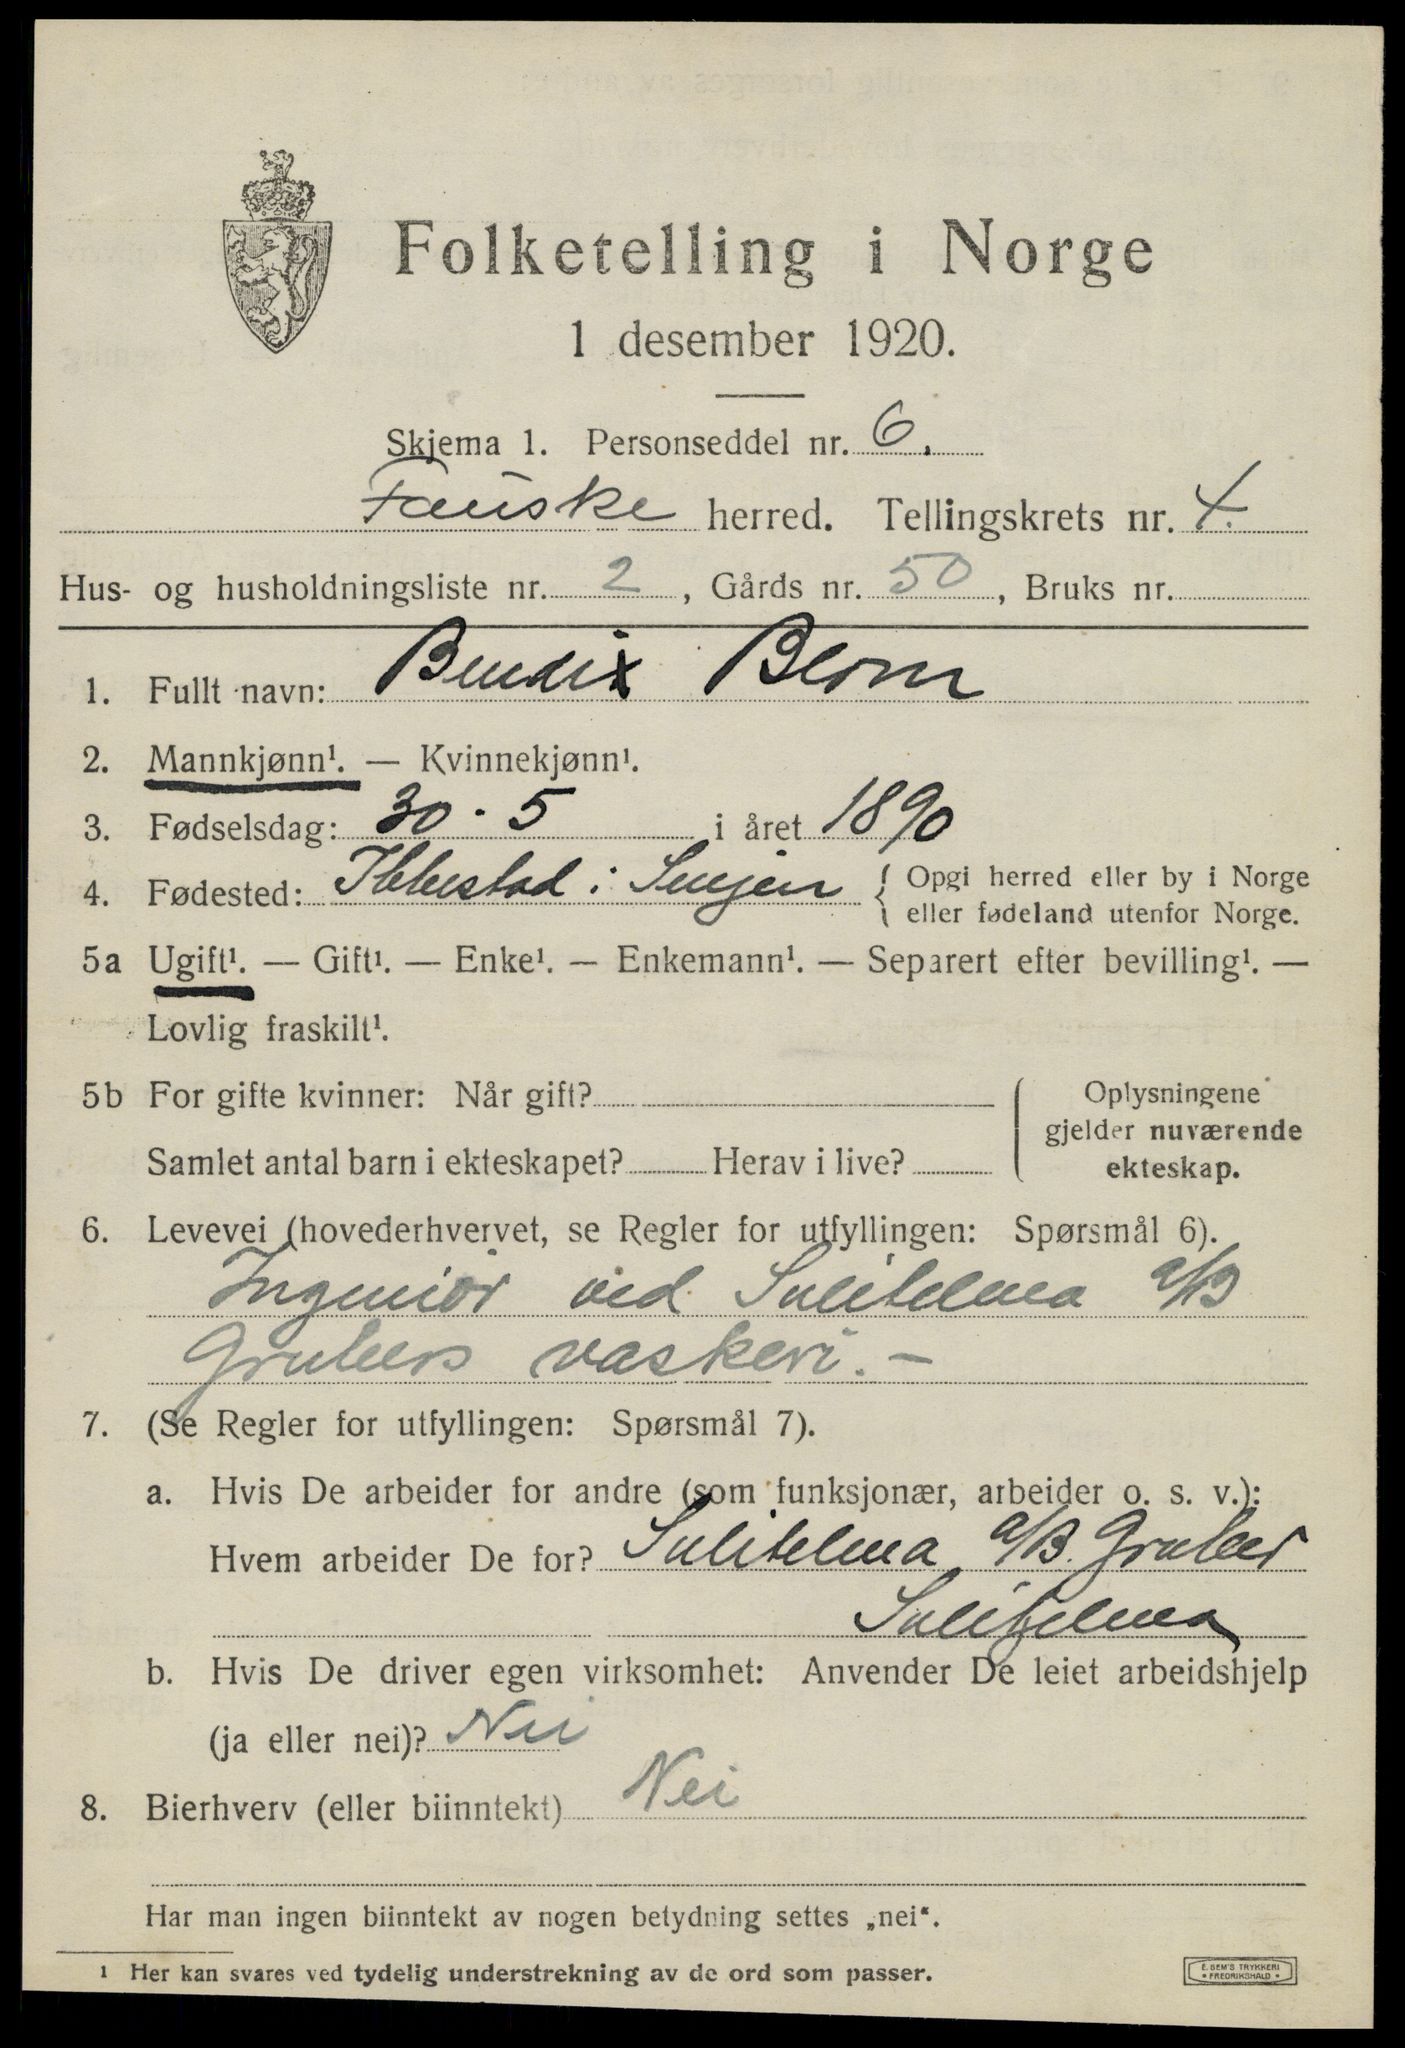 Folketelling i Norge
1 desember 1920.
Skjema 1. Personseddel nr. 6.
Fauske herred. Tellingskrets nr. 4.
Hus- og husholdningsliste nr. 2, Gårds nr. 50, Bruks nr.
1. Fullt navn: Bendix Blom
2. Mannkjønn¹. — Kvinnekjønn¹.
3. Fødselsdag: 30 · 5 i året 1890
4. Fødested: Ibbestad i Senjen { Opgi herred eller by i Norge
eller fødeland utenfor Norge.
5a Ugift¹. — Gift¹. — Enke¹. — Enkemann¹. — Separert efter bevilling¹. —
Lovlig fraskilt¹.
5b For gifte kvinner: Når gift?
Samlet antal barn i ekteskapet? Herav i live?
Oplysningene
gjelder nuværende
ekteskap.
6. Levevei (hovederhvervet, se Regler for utfyllingen: Spørsmål 6).
Ingeniör ved Sulitelma a/B
Grubers vaskeri. —
7. (Se Regler for utfyllingen: Spørsmål 7).
a. Hvis De arbeider for andre (som funksjonær, arbeider o. s. v.):
Hvem arbeider De for? Sulitelma a/B. Gruber
Sulitjelma
b. Hvis De driver egen virksomhet: Anvender De leiet arbeidshjelp
(ja eller nei)? Nei
8. Bierhverv (eller biinntekt) Nei
Har man ingen biinntekt av nogen betydning settes „nei“.
¹ Her kan svares ved tydelig understrekning av de ord som passer.
E. SEM'S TRYKKERI
• FREDRIKSHALD •